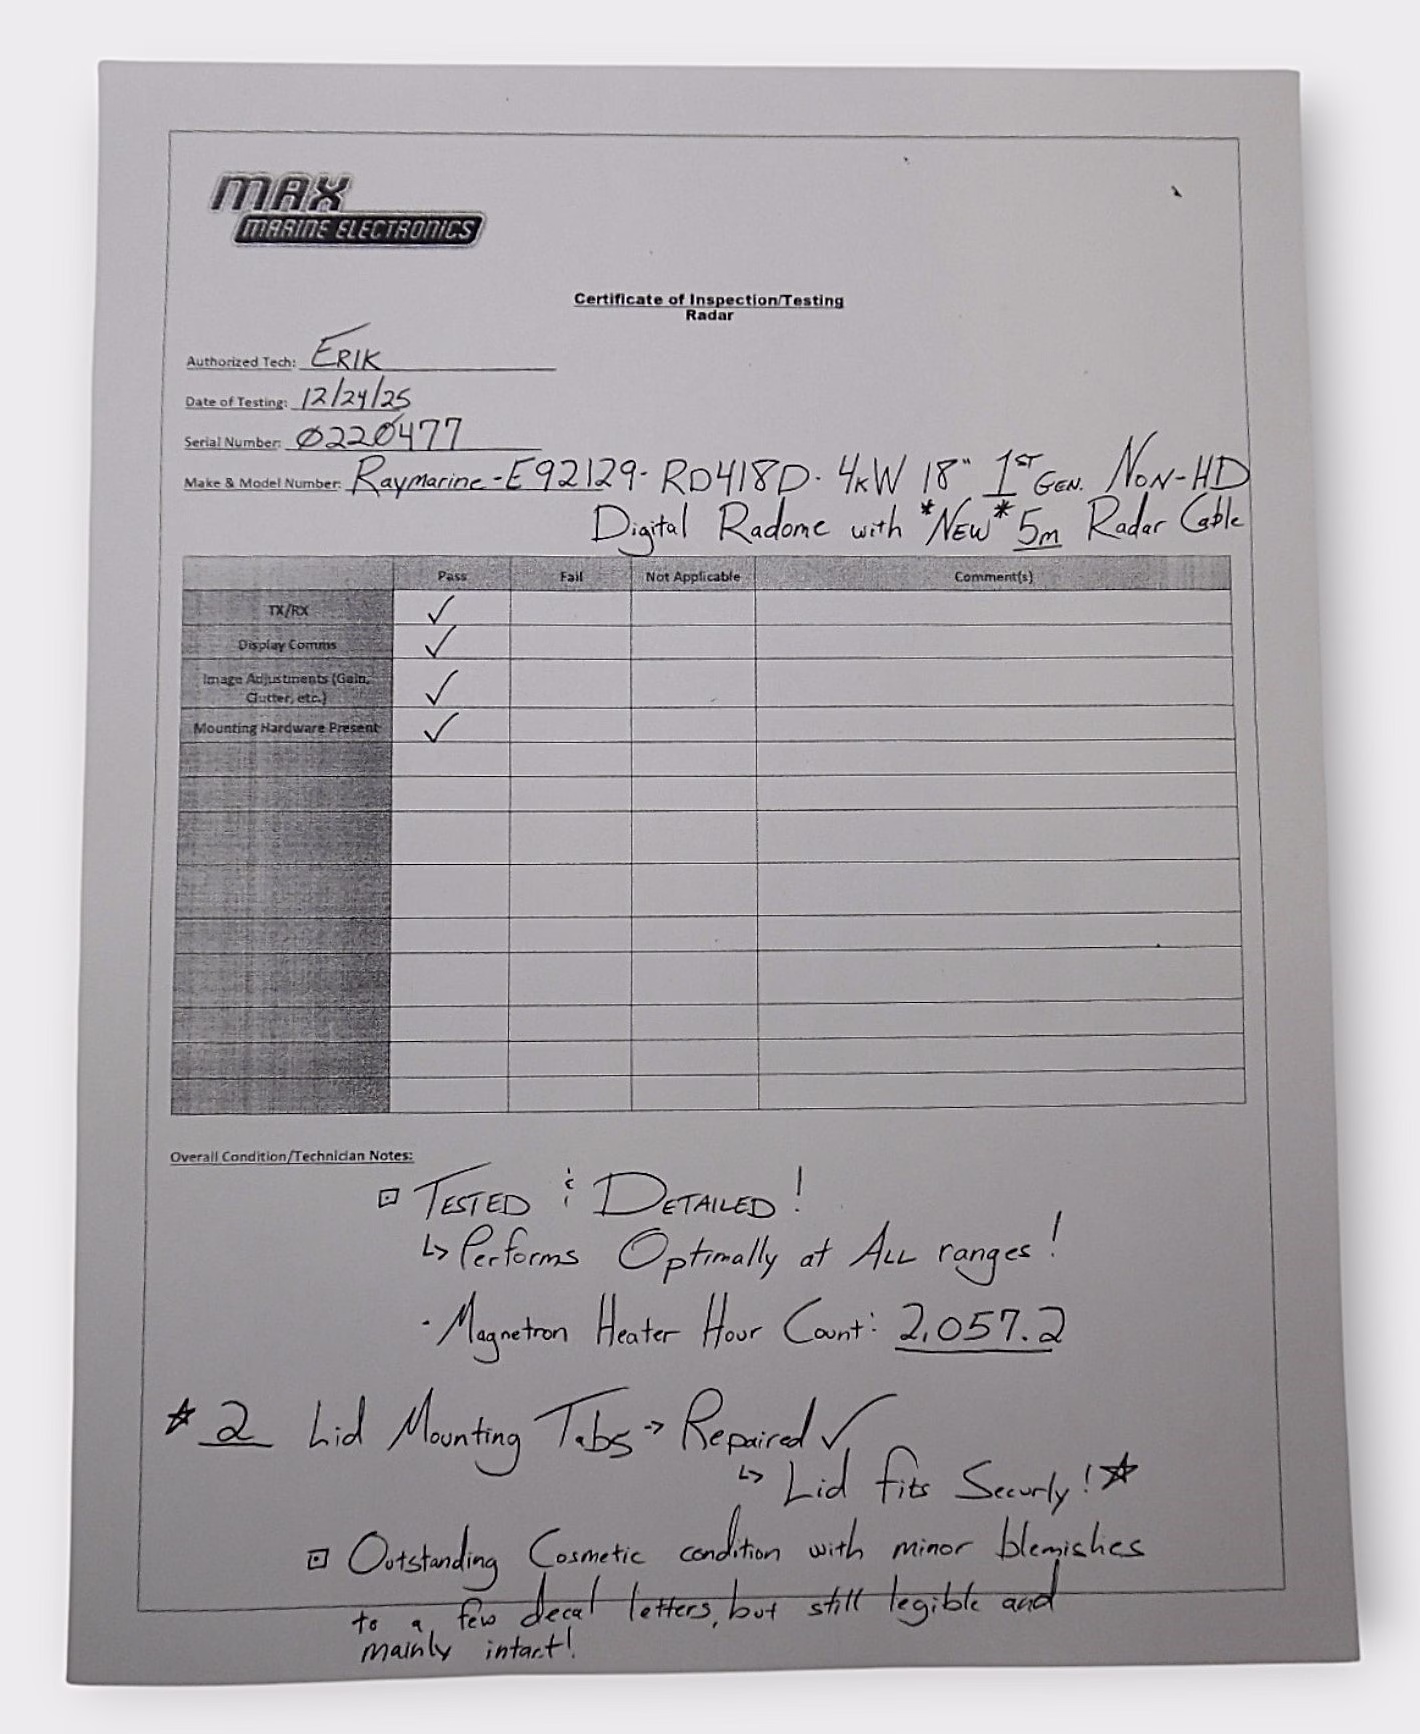 MAX
MARINE ELECTRONICS
Certificate of Inspection/Testing
Radar
Authorized Tech: ERIK
Date of Testing: 12/24/25
Serial Number: 0220477
Make & Model Number: Raymarine-E92129-RD418D. 4kW 18" 1ST GEN. NON-HD
Digital Radome with *NEW* 5m Radar Cable
Pass Fail Not Applicable Comment(s)
TX/RX ✓
Display Comms ✓
Image Adjustments (Gain,
Clutter, etc.) ✓
Mounting Hardware Present ✓
Overall Condition/Technician Notes:
TESTED & DETAILED!
↳ Performs Optimally at ALL ranges!
· Magnetron Heater Hour Count: 2,057.2
☆ 2 Lid Mounting Tabs → Repaired ✓
↳ Lid fits Securly! ☆
Outstanding Cosmetic condition with minor blemishes
to a few decal letters, but still legible and
mainly intact!